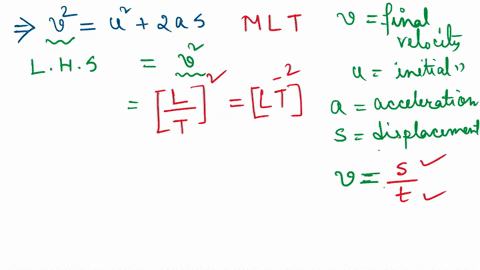 ⇒ v² = u² + 2as
MLT
L.H.S = v²
= [L/T]² = [LT⁻²]
v = final velocity
u = initial "
a = acceleration
s = displacement
v = s/t